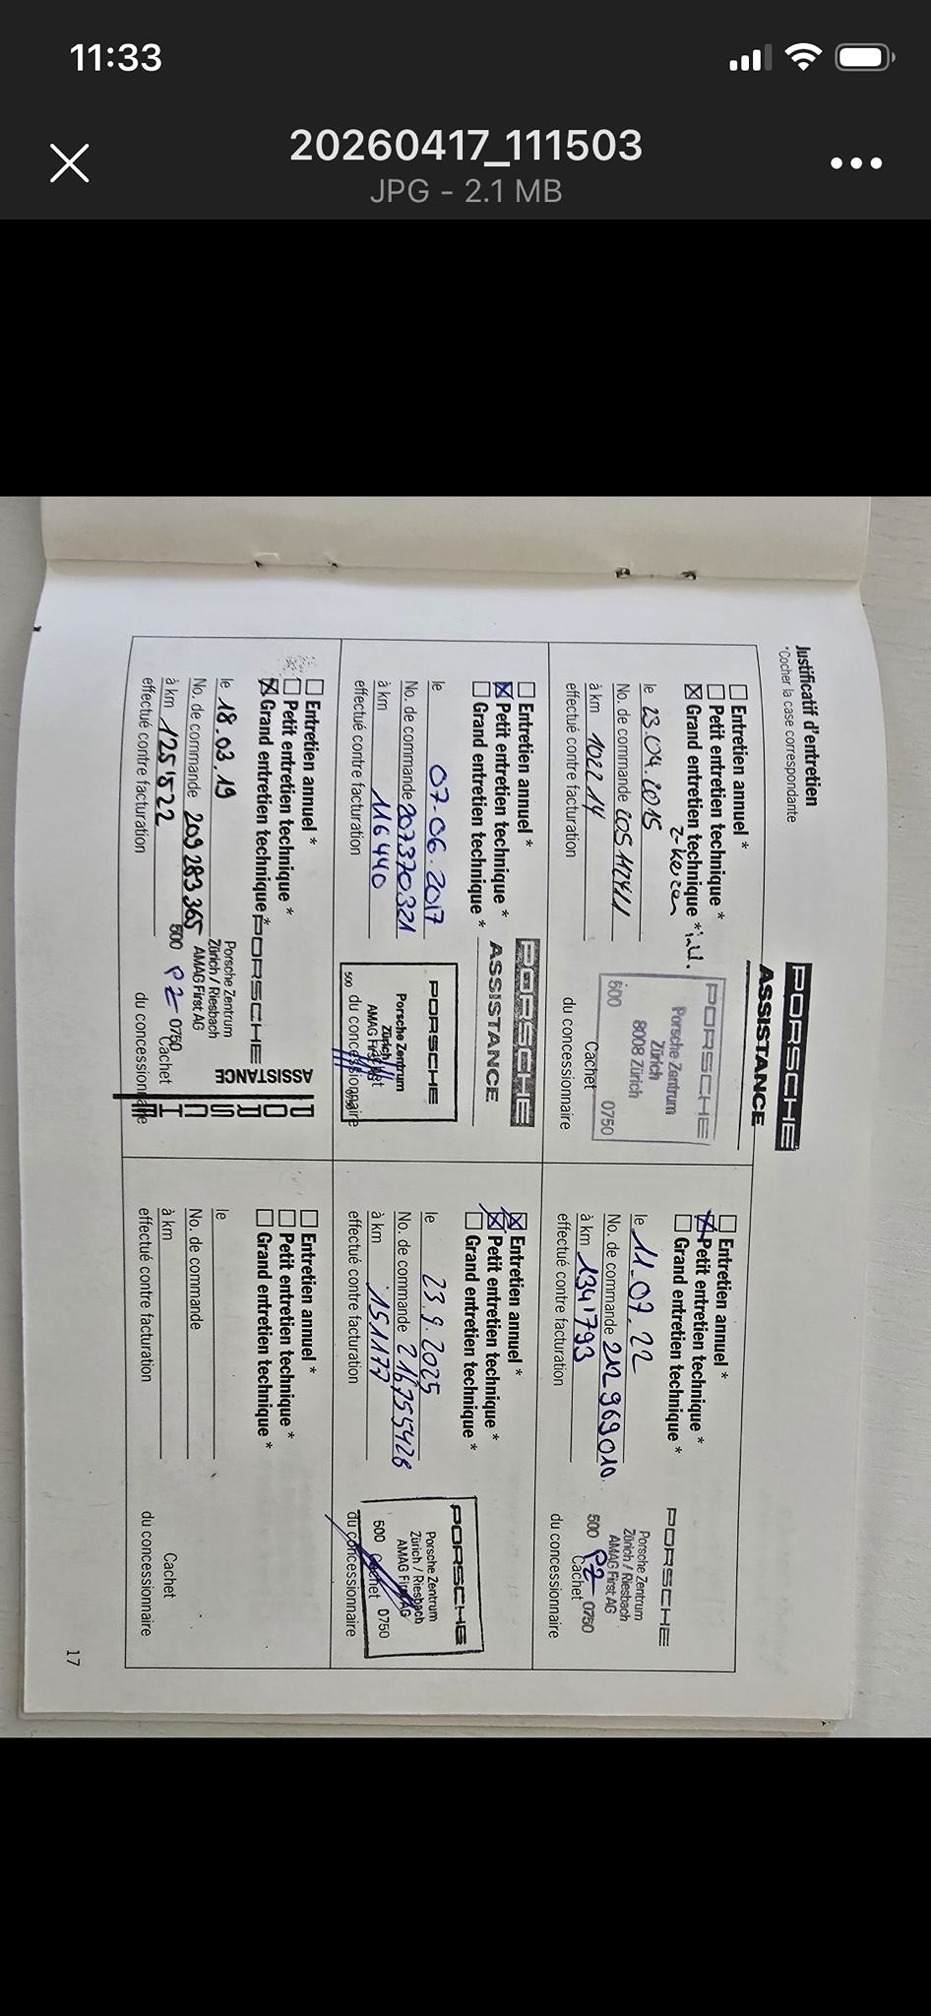 11:33
20260417_111503
JPG - 2.1 MB
Justificatif d'entretien
*Cocher la case correspondante
PORSCHE
ASSISTANCE
Entretien annuel *
Petit entretien technique *
Grand entretien technique * inkl.
Z-Kerzen
le 23.04.2015
No. de commande
à km 102214
effectué contre facturation
PORSCHE
Porsche Zentrum
Zürich
8008 Zürich
500 0750
Cachet
du concessionnaire
Entretien annuel *
Petit entretien technique *
Grand entretien technique *
le 07.06.2017
No. de commande 207370321
à km 116440
effectué contre facturation
PORSCHE
ASSISTANCE
PORSCHE
Porsche Zentrum
Zürich
AMAG
Cachet
500
du concessionnaire
Entretien annuel *
Petit entretien technique *
Grand entretien technique *
le 18.03.19
No. de commande 209 283 365
à km 125'522
effectué contre facturation
PORSCHE
ASSISTANCE
Porsche Zentrum
Zürich / Riesbach
AMAG First AG
500 PZ 0750
Cachet
du concessionnaire
Entretien annuel *
Petit entretien technique *
Grand entretien technique *
le 11.07.22
No. de commande 212 969 010
à km 134'793
effectué contre facturation
PORSCHE
Porsche Zentrum
Zürich / Riesbach
AMAG First AG
500 PZ 0750
Cachet
du concessionnaire
Entretien annuel *
Petit entretien technique *
Grand entretien technique *
le 23.9.2025
No. de commande 216755426
à km 151177
effectué contre facturation
PORSCHE
Porsche Zentrum
Zürich / Riesbach
AMAG First AG
500 Cachet 0750
du concessionnaire
Entretien annuel *
Petit entretien technique *
Grand entretien technique *
le
No. de commande
à km
effectué contre facturation
Cachet
du concessionnaire
17